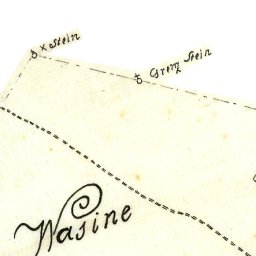 x Stein
Grenz Stein
Wasine